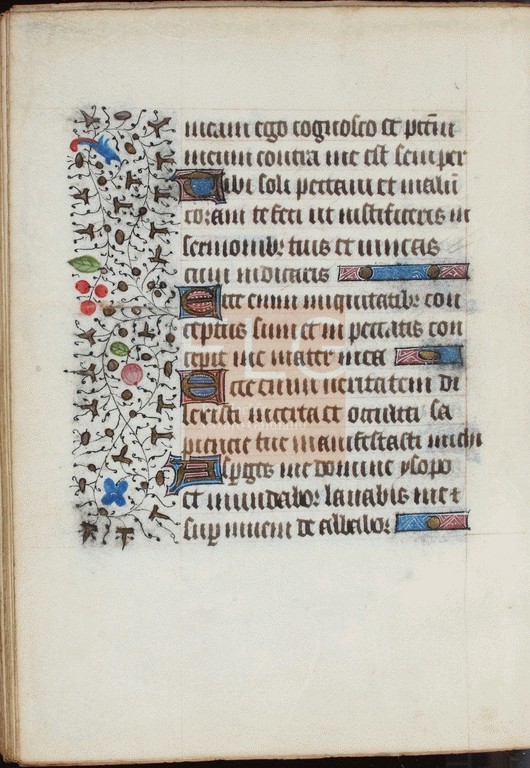 meam ego cognosco et pctm̄
meum contra me est semper
Tibi soli peccaui et malū
coram te feci ut iustificeris in
sermonibꝫ tuis et uincas
cum iudicaris
Ecce enim iniquitatibꝫ con
ceptus sum et in peccatis con
cepit me mater mea
Ecce enim ueritatem di
lexisti incerta et occulta sa
pientie tue manifestasti michi
Asperges me domine ysopo
et mundabor lauabis me ⁊
sup niuem de albabor